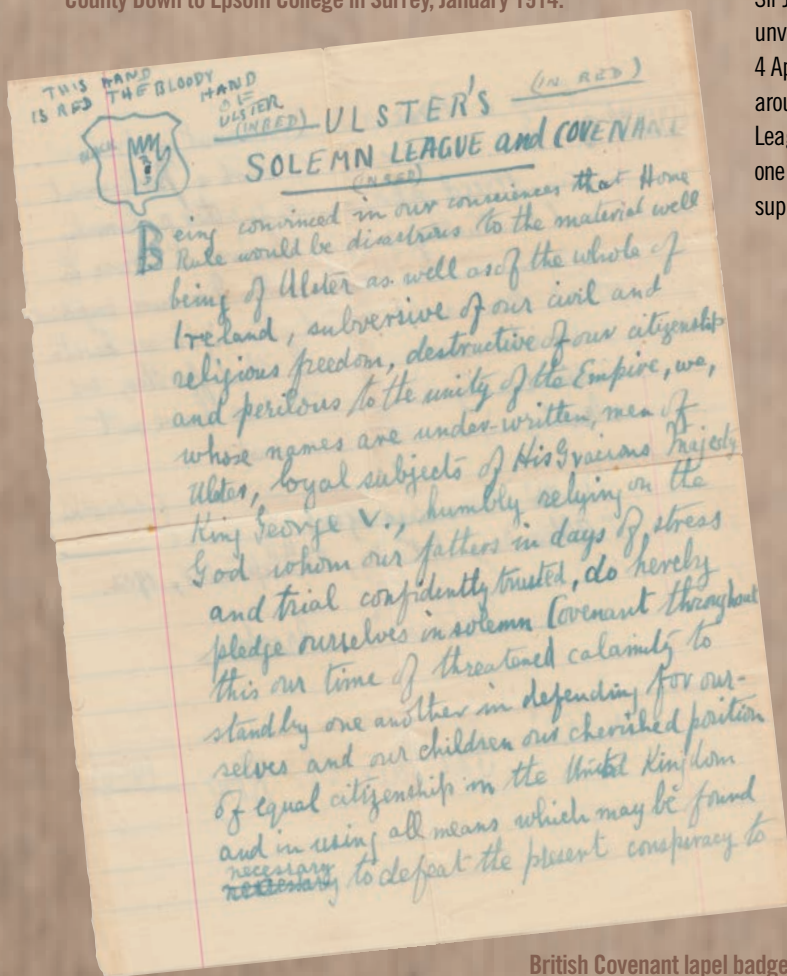 County Down to Epsom College in Surrey, January 1914.
Sir J
unv
4 Ap
arou
Leag
one
sup
THIS HAND
IS RED THE BLOODY
HAND
OF
ULSTER
(IN RED)
(IN RED)
ULSTER'S
SOLEMN LEAGUE and COVENANT
(IN RED)
Being convinced in our consciences that Home
Rule would be disastrous to the material well
being of Ulster as well as of the whole of
Ireland, subversive of our civil and
religious freedom, destructive of our citizenship
and perilous to the unity of the Empire, we,
whose names are under-written, men of
Ulster, loyal subjects of His Gracious Majesty
King George V., humbly relying on the
God whom our fathers in days of stress
and trial confidently trusted, do hereby
pledge ourselves in solemn Covenant throughout
this our time of threatened calamity to
stand by one another in defending for our-
selves and our children our cherished position
of equal citizenship in the United Kingdom
and in using all means which may be found
necessary
to defeat the present conspiracy to
British Covenant lapel badge